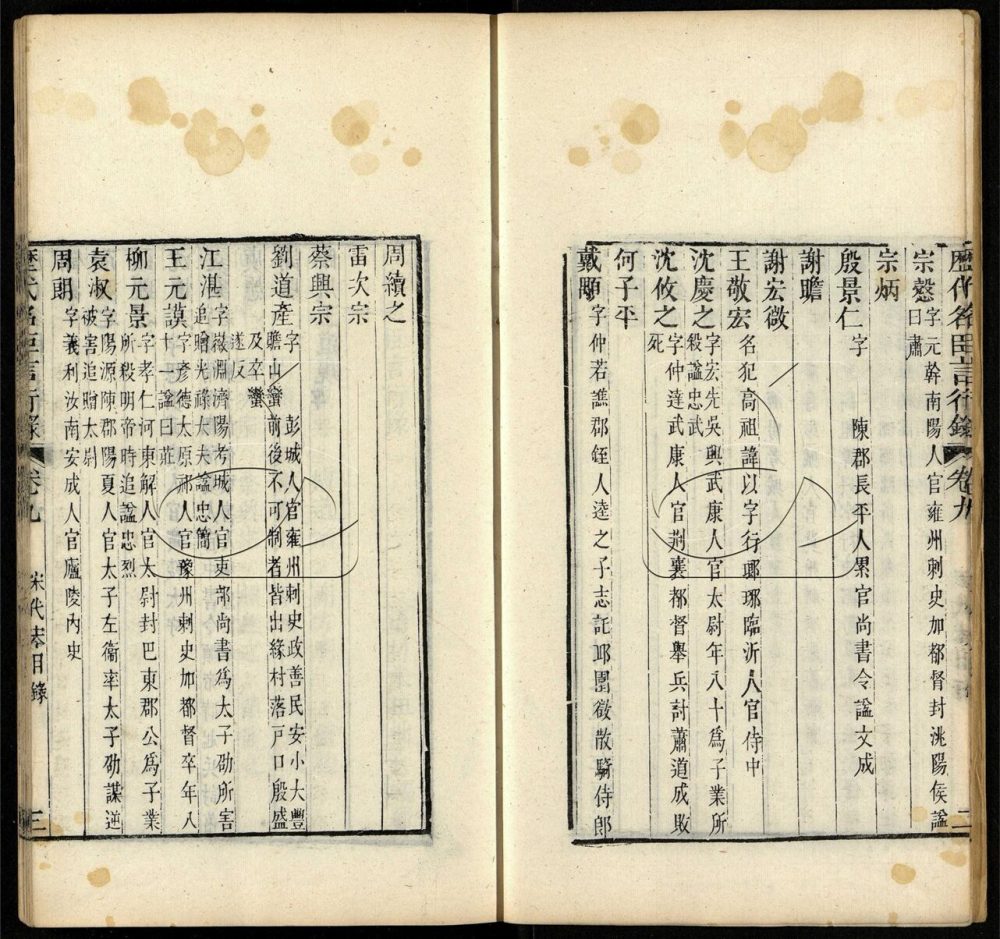 歴代名臣言行錄 卷九 二
宗慤 字元幹南陽人官雍州刺史加都督封洮陽侯諡曰肅
宗炳
殷景仁 字 陳郡長平人累官尚書令諡文成
謝瞻
謝宏微
王敬宏 名犯高祖諱以字行瑯琊臨沂人官侍中
沈慶之 字宏先吳興武康人官太尉年八十爲子業所殺諡忠武
沈攸之 字仲達武康人官荆襄都督舉兵討蕭道成敗死
何子平
戴顒 字仲若譙郡銍人逵之子志託邱園徵散騎侍郎
周續之
雷次宗
蔡興宗
劉道產 字 彭城人官雍州刺史政善民安小大豐贍山蠻前後不可制者皆出緣村落戸口殷盛及卒蠻遂反
江湛 字徽淵濟陽考城人官吏部尚書爲太子劭所害追贈光祿大夫諡忠簡
王元謨 字彥德太原祁人官豫州刺史加都督卒年八十一諡曰莊
柳元景 字孝仁河東解人官太尉封巴東郡公爲子業所殺明帝時追諡忠烈
袁淑 字陽源陳郡陽夏人官太子左衞率太子劭謀逆被害追贈太尉
周朗 字義利汝南安成人官廬陵內史
歴代名臣言行錄 卷九 宋代 目錄 三